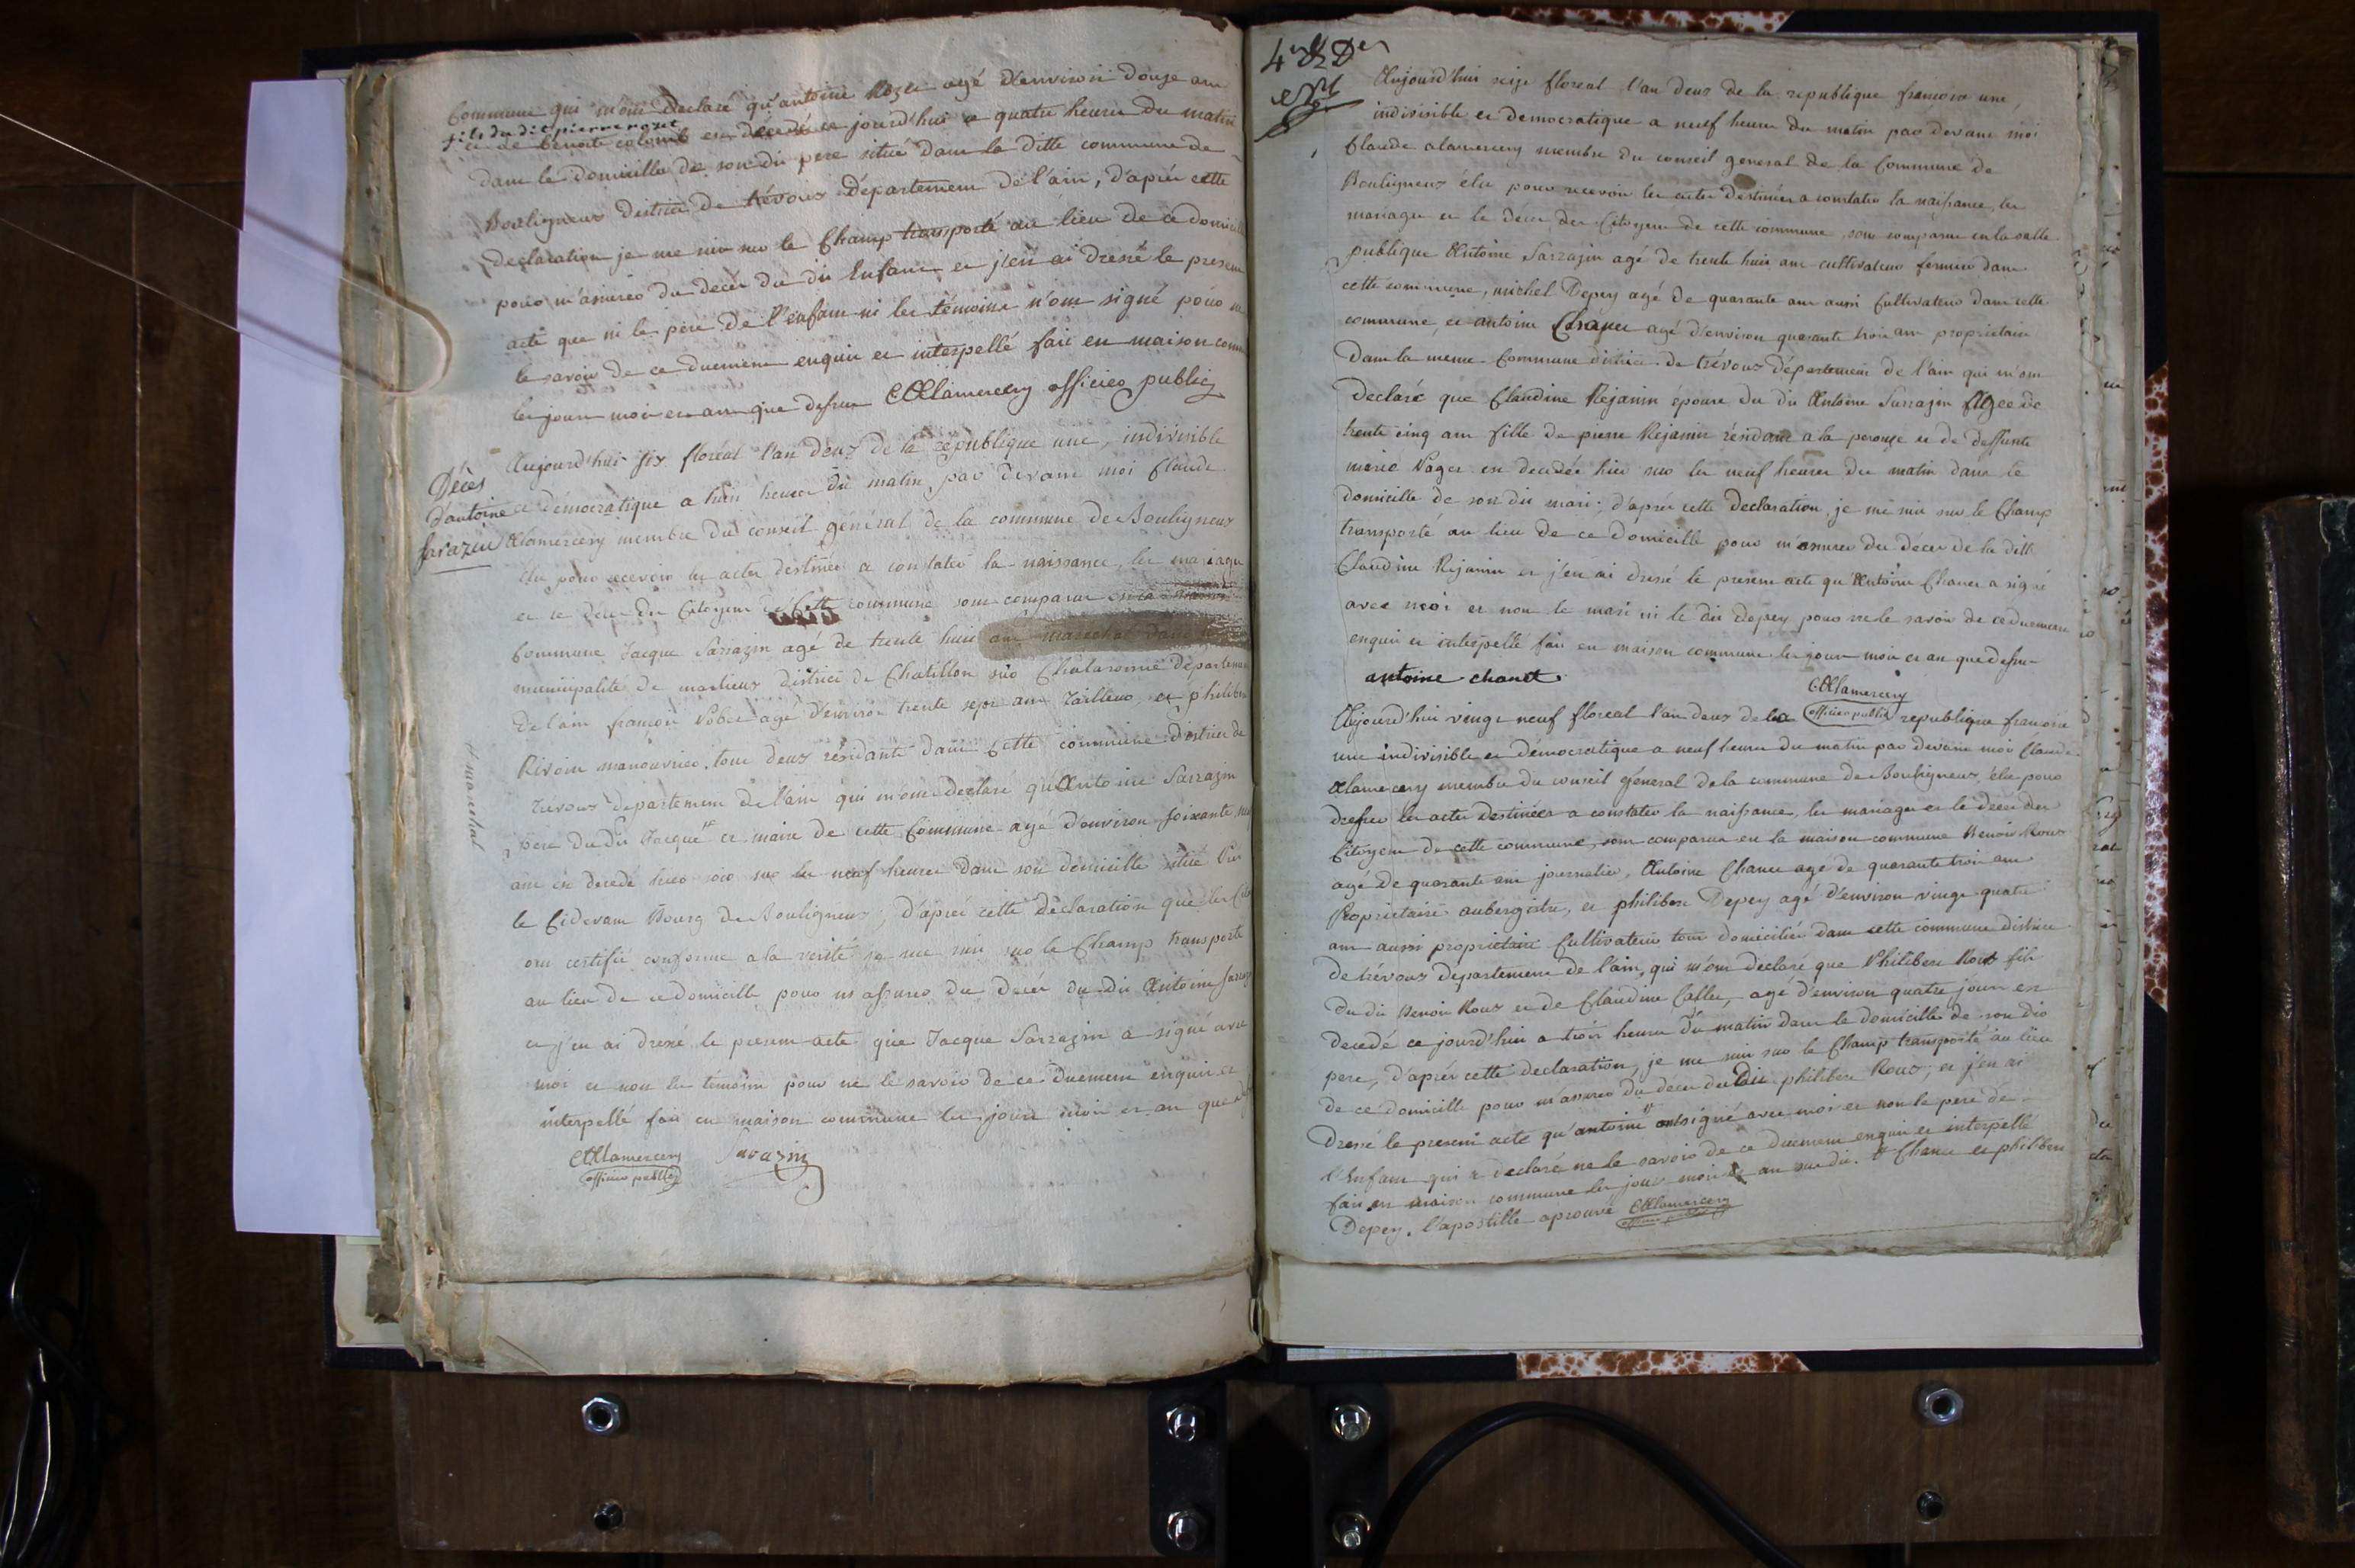 Commune qui m'ont declaré qu'antoine Rozet agé d'environ douze ans
fils du dit pierre rozet
et de benoite colomb est décédé ce jourd'hui a quatre heures du matin
dans le domicille de son dit pere situé dans la ditte commune de
Bouligneux district de trévoux département de l'ain, d'après cette
declaration je me suis sur le Champ transporté au lieu de ce domicille
pour m'assurer du decès du dit Enfant et j'en ai dressé le present
acte que ni le père de l'enfant ni les témoins n'ont signé pour ne
le savoir de ce duement enquis et interpellé fait en maison comm
les jours mois et an que dessus C Alamercery officier public
Décès
d'antoine
sarazin
Aujourd'hui six floréal l'an deux de la republique une, indivisible
et démocratique a huit heures du matin, par devant moi Claude
Alamercery membre du conseil général de la commune de Bouligneux
élu pour recevoir les actes destinés a constater la naissance, les mariages
et le décès des Citoyens de Cette commune sont comparus en la maison
Commune Jacque Sarrazin agé de trente huit ans marechal dans la
municipalité de marlieux district de Chatillon sur Chalaronne département
de l'ain françois agé d'environ trente sept ans tailleur, et philibert
Rivoire manouvrier, tous deux résidants dans Cette commune district de
Trevoux departement de l'ain qui m'ont declaré qu'Antoine Sarrazin
père du dit Jacque # et maire de cette Commune agé d'environ soixante
ans est decedé hier soir sur les neuf heures dans son domicille situé
# marechal
le Cidevant Bourg de Bouligneux; d'après cette déclaration que les
ont certifié conforme a la verité je me suis sur le Champ transporté
au lieu de ce domicille pour m'assurer du decès du dit Antoine Sarrazin
et j'en ai dressé le present acte que Jacque Sarrazin a signé avec
moi et non les témoins pour ne le savoir de ce duement enquis et
interpellé fait en maison commune les jours mois et an que
C Alamercery Sarazin
officier public
4
Aujourd'hui seize floreal l'an deux de la republique françoise une,
indivisible et democratique a neuf heures du matin par devant moi
Claude alamercery membre du conseil general de la Commune de
Bouligneux élu pour recevoir les actes destinés a constater la naissance, les
mariages et le décès des Citoyens de cette commune sont comparus en la salle
publique Antoine Sarrazin agé de trente huit ans cultivateur fermier dans
cette commune, michel Depey agé de quarante ans aussi Cultivateur dans cette
commune, et antoine Chanet agé d'environ quarante trois ans propriétaire
Dans la meme Commune district de trévoux département de l'ain qui m'ont
Declaré que Claudine Rejanin épouse du dit Antoine Sarrazin Agée de
trente cinq ans fille de pierre Rejanin résidant a la perouze et de deffunte
marie est decedée hier sur les neuf heures du matin dans le
domicille de son dit mari: d'après cette declaration, je me suis sur le Champ
transporté au lieu de ce domicille pour m'assurer du décès de la ditte
Claudine Rejanin et j'en ai dressé le present acte qu'Antoine Chanet a signé
avec moi et non le mari ni le dit Depey pour ne le savoir de ce duement
enquis et interpellé fait en maison commune les jour mois et an que dessus
antoine chanet C Alamercery
officier public
Aujourd'hui vingt neuf floreal l'an deux de la republique françoise
une indivisible et démocratique a neuf heures du matin par devant moi Claude
Alamercery membre du conseil général de la commune de Bouligneux élu pour
dresser les actes destinées a constater la naissance, les mariages et le décès des
Citoyens de cette commune, sont comparus en la maison commune Benoit Roux
agé de quarante ans journalier, Antoine Chanet agé de quarante trois ans
Propriétaire aubergiste, et philibert Depey agé d'environ vingt quatre
ans aussi proprietaire Cultivateur tous domiciliés dans cette commune district
de trévoux departement de l'ain, qui m'ont declaré que Philibert Roux fils
du dit Benoit Roux et de Claudine agé d'environ quatre jours est
decedé ce jourd'hui a trois heures du matin dans le domicille de son dit
pere, d'après cette declaration, je me suis sur le Champ transporté au lieu
de ce domicille pour m'assurer du decès du dit philibert Roux, et j'en ai
dressé le present acte qu'antoine # ont signé avec moi et non le pere de
l'Enfant qui a declaré ne le savoir de ce duement enquis et interpellé
fait en maison commune les jour mois et an que dit. # Chanet et philibert
Depey. l'apostille aprouvé C Alamercery
officier public